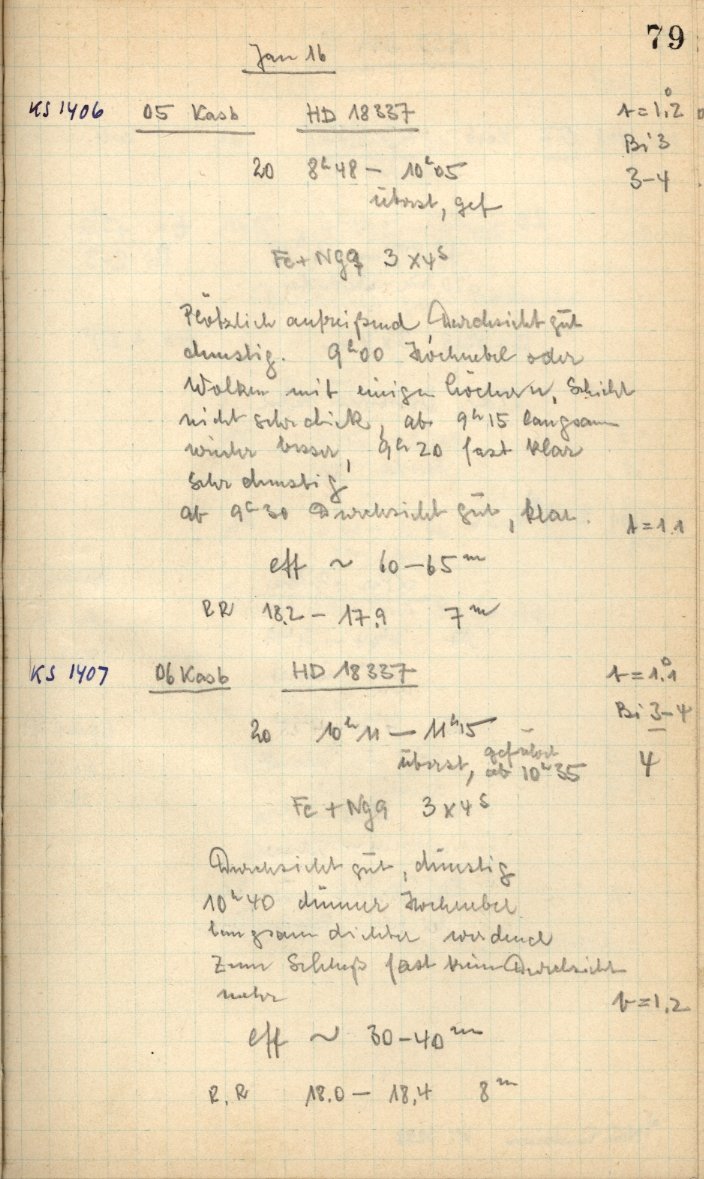 79
Jan 16
KS 1406 05 Kasb HD 18337 t=1.2
Bi 3
20 8h48 – 10h05 3–4
überst, gef
Fe+Ng9 3x4s
Plötzlich aufreißend Durchsicht gut
dunstig. 9h00 Hochnebel oder
Wolken mit einigen Löchern, Schicht
nicht sehr dick, ab 9h15 langsam
wieder besser, 9h20 fast klar
sehr dunstig
ab 9h30 Durchsicht gut, klar.
t=1.1
eff ~ 60–65m
RR 18,2 – 17,9 7m
KS 1407 06 Kasb HD 18337 t=1.1
Bi 3–4
20 10h11 – 11h15
überst, geführt ab 10h35 4
Fe + Ng9 3x4s
Durchsicht gut, dunstig
10h40 dünner Hochnebel
langsam dichter werdend
Zum Schluß fast keine Durchsicht
mehr
t=1,2
eff ~ 30–40m
R.R 18.0 – 18,4 8m